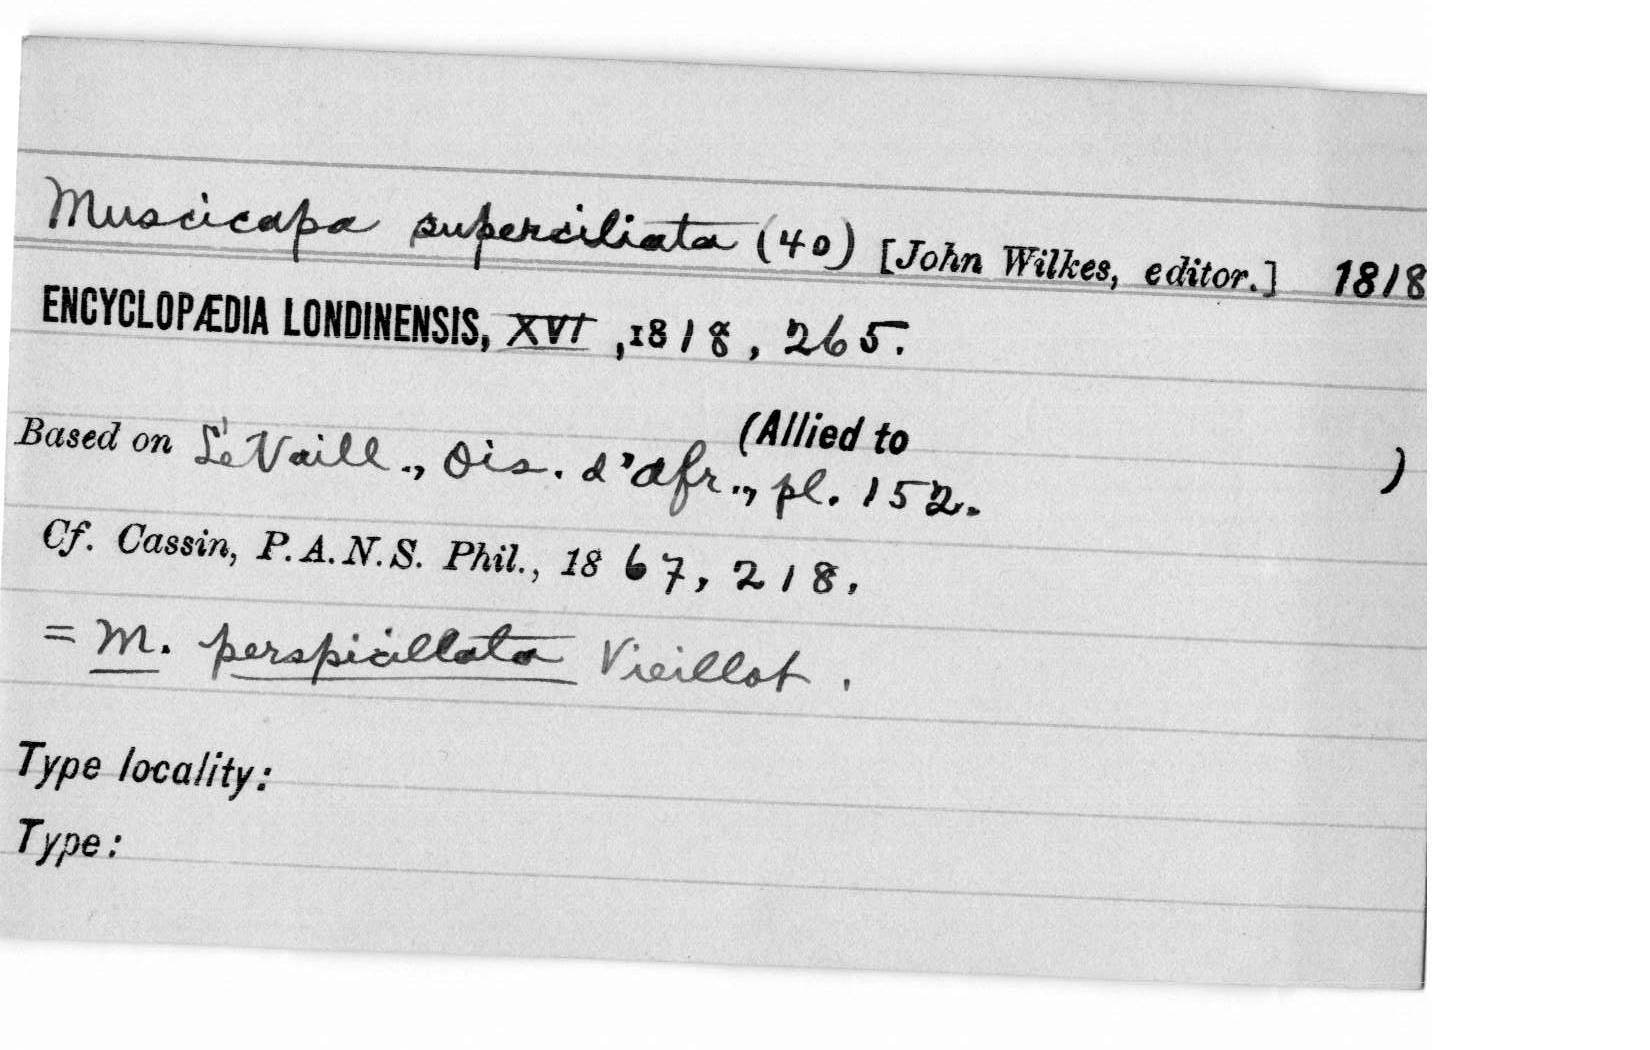 Muscicapa superciliata (40) [John Wilkes, editor.] 1818
ENCYCLOPÆDIA LONDINENSIS, XVI, 1818, 265.
(Allied to )
Based on LeVaill., Ois. d'Afr., pl. 152.
Cf. Cassin, P.A.N.S. Phil., 1867, 218.
= M. perspicillata Vieillot.
Type locality:
Type: